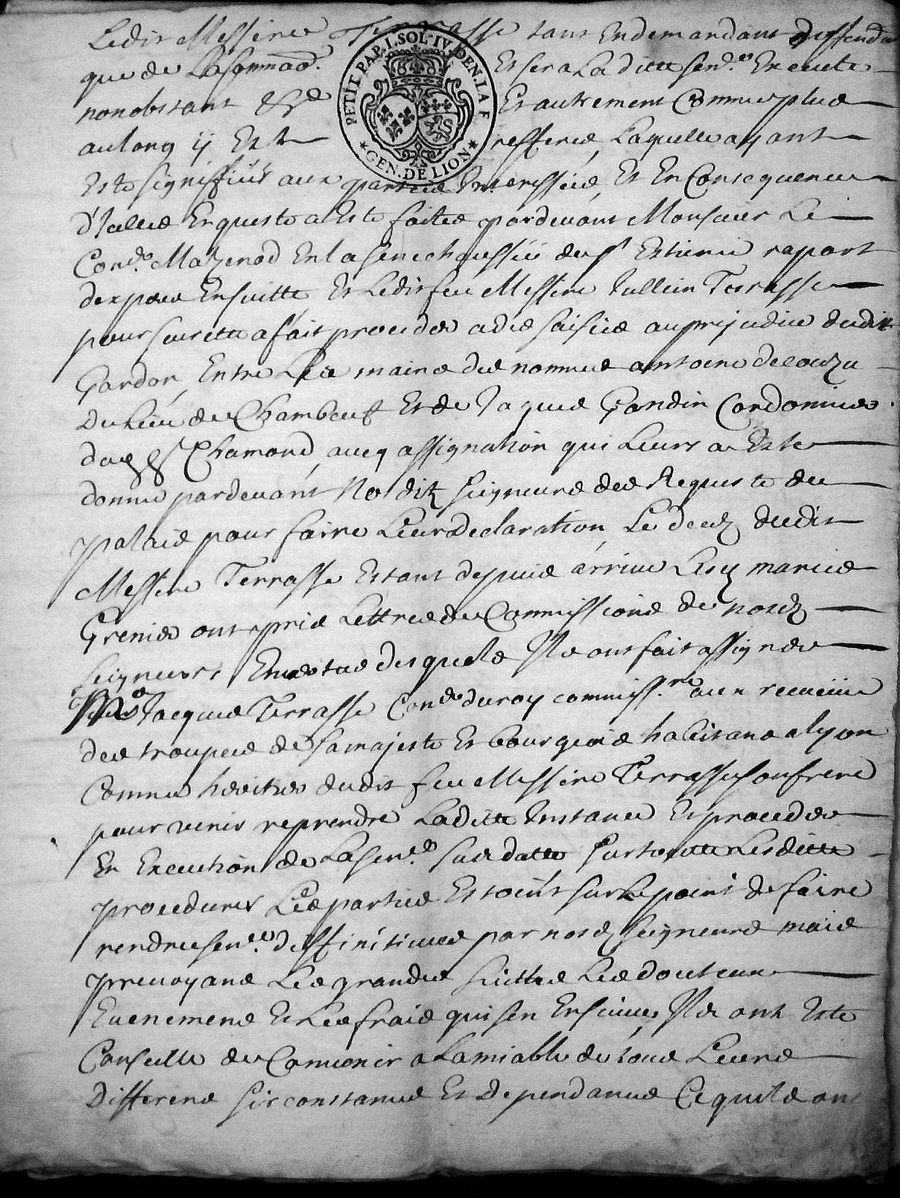 Ledit Messire Terrasse tant En demandant deffenda
PETIT PAP. I. SOL. IV. DEN. LA F
GEN. DE LION
que de Lasommaon. Et sera Laditte sence. Execute
nonobstant &a Et autrement Comme plus
au long y Est refferé, Laquelle ayant
Esté signiffiéé aux parties Interesséé Et En Consequence
d'Icelle Enqueste a Esté faitte pardevant Monsieur Le
Coner. Mazenod En la senechaussée de st Estienne raport
dexpers Ensuitte Et Ledit feu Messire Jullien Terrasse
pour sa uretté a fait proceder a des saisies au prejudice dudit
Gardon, Entre Les mains des nommés antoine
du Lieu de Chambœuf Et de Jaques Gandin Cordonnier
de St Chamond, avec assignation qui Leurs a Esté
donné pardevant Nosditz seigneurs des Requeste du
palais pour faire Leur Declaration, Le deces dudit
Messire Terrasse Estant depuis arrivé Lesd mariés
Grenier ont pris Lettres de Commissions de nosdz
seigneurs Envertu desquels Ils ont fait assigner
Jacques Terrasse Coner. du roy commissre. aux
des troupes de Samajesté Et bourgeois habitans a lyon
Comme heritier dudit feu Messire Terrasse son frere
pour venir reprendre Laditte Instance Et proceder
En Execution de La sence. Sur tout Lesditte
procedures Les parties Estoint sur Le point de faire
rendre sence. deffinitives par nosdz seigneurs mais
prevoyans Les grandes suittes Les douteux
Evenemens Et Les frais qui sen Ensuivent Ils ont Esté
Conseillé de Convenir a Lamiable de tous Leurs
Differens sirconstances Et Dependances Ce quils ont